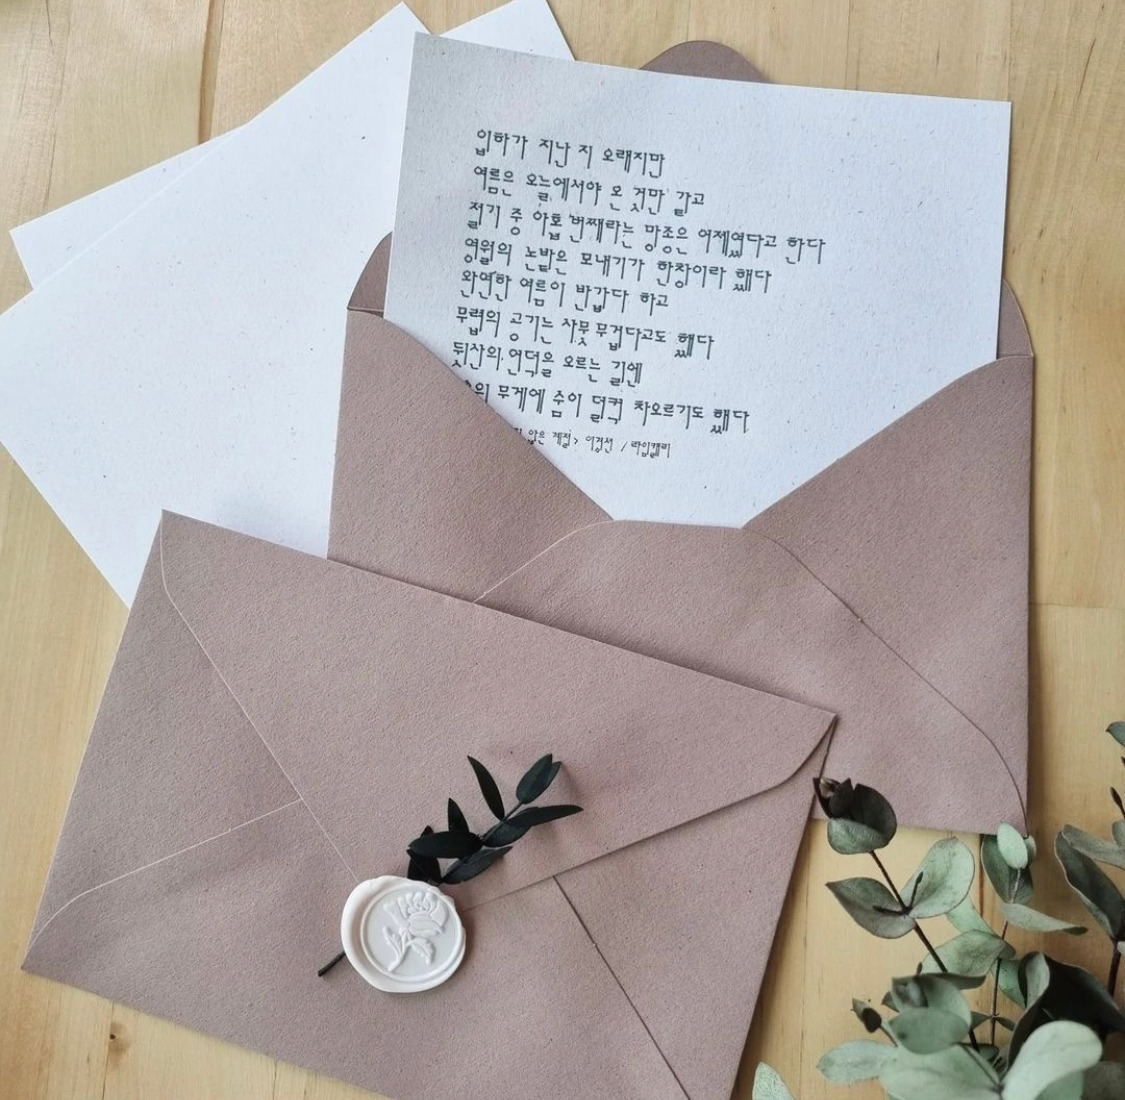 입하가 지난 지 오래지만
여름은 오늘에서야 온 것만 같고
절기 중 아홉 번째라는 망종은 어제였다고 한다
영월의 논밭은 모내기가 한창이라 했다
완연한 여름이 반갑다 하고
무렵의 공기는 사뭇 무겁다고도 했다
뒷산의 언덕을 오르는 길엔
의 무게에 숨이 덜컥 차오르기도 했다
않은 계절> 이경선 / 라임캘리